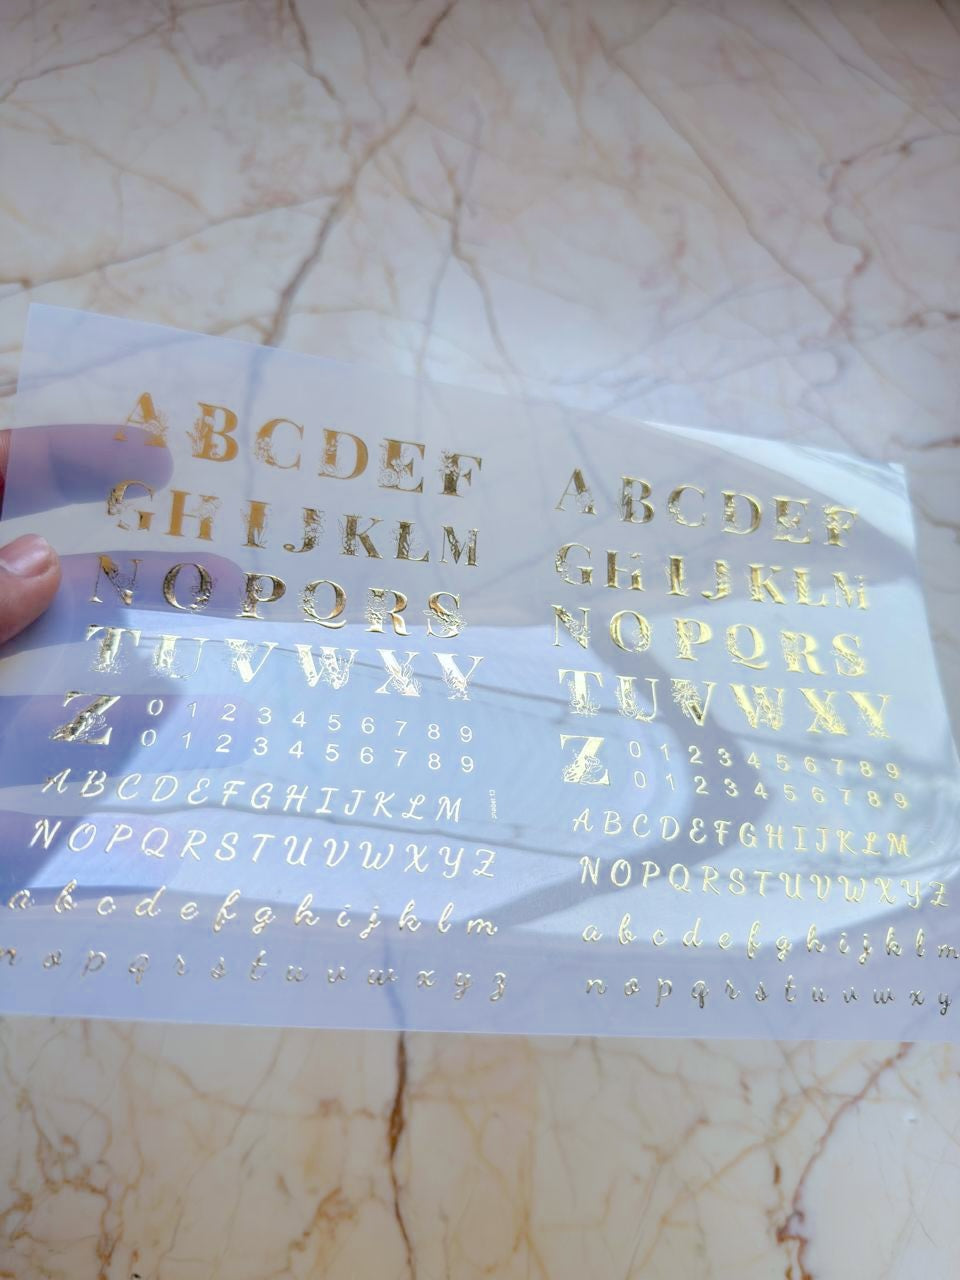 A B C D E F
G H I J K L M
N O P Q R S
T U V W X Y
Z 0 1 2 3 4 5 6 7 8 9
0 1 2 3 4 5 6 7 8 9
A B C D E F G H I J K L M
N O P Q R S T U V W X Y Z
a b c d e f g h i j k l m
n o p q r s t u v w x y z
A B C D E F
G H I J K L M
N O P Q R S
T U V W X Y
Z 0 1 2 3 4 5 6 7 8 9
0 1 2 3 4 5 6 7 8 9
A B C D E F G H I J K L M
N O P Q R S T U V W X Y Z
a b c d e f g h i j k l m
n o p q r s t u v w x y